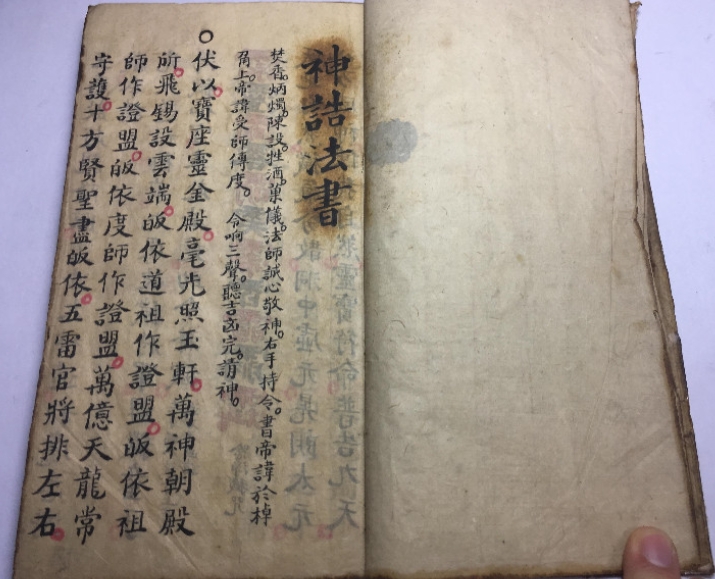 神誥法書
焚香炳燭。陳設牲酒。菓儀。法師誠心敬神。右手持令。書帝諱於棹
角上。帝諱受師傳度。令响三聲。聽吉凾完。請神。
○伏以。寶座靈金殿。毫光照玉軒。萬神朝殿
所。飛錫設雲端。皈依道祖作證盟。皈依祖
師作證盟。皈依度師作證盟。萬億天龍常
守護。十方賢聖盡皈依。五雷官將排左右。